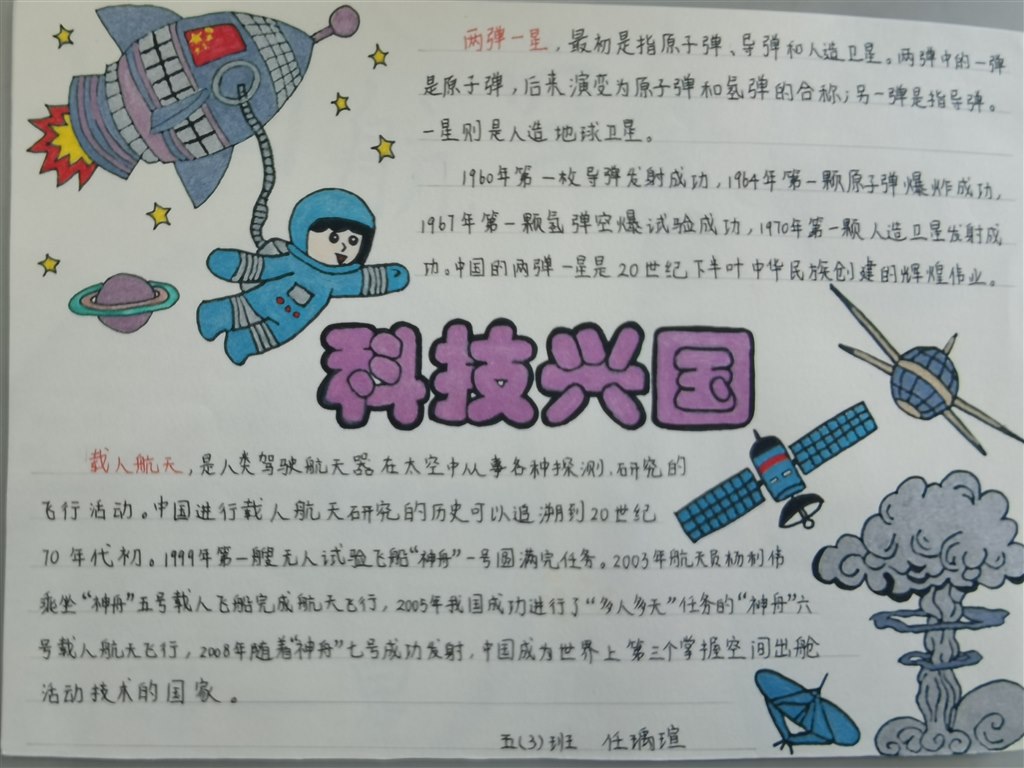 两弹一星，最初是指原子弹、导弹和人造卫星。两弹中的一弹
是原子弹，后来演变为原子弹和氢弹的合称；另一弹是指导弹。
一星则是人造地球卫星。
1960年第一枚导弹发射成功，1964年第一颗原子弹爆炸成功，
1967年第一颗氢弹空爆试验成功，1970年第一颗人造卫星发射成
功。中国的两弹一星是20世纪下半叶中华民族创建的辉煌伟业。
科技兴国
载人航天，是人类驾驶航天器在太空中从事各种探测、研究的
飞行活动。中国进行载人航天研究的历史可以追溯到20世纪
70年代初。1999年第一艘无人试验飞船“神舟”一号圆满完任务。2003年航天员杨利伟
乘坐“神舟”五号载人飞船完成航天飞行，2005年我国成功进行了“多人多天”任务的“神舟”六
号载人航天飞行，2008年随着“神舟”七号成功发射，中国成为世界上第三个掌握空间出舱
活动技术的国家。
五(3)班 任瑀瑄